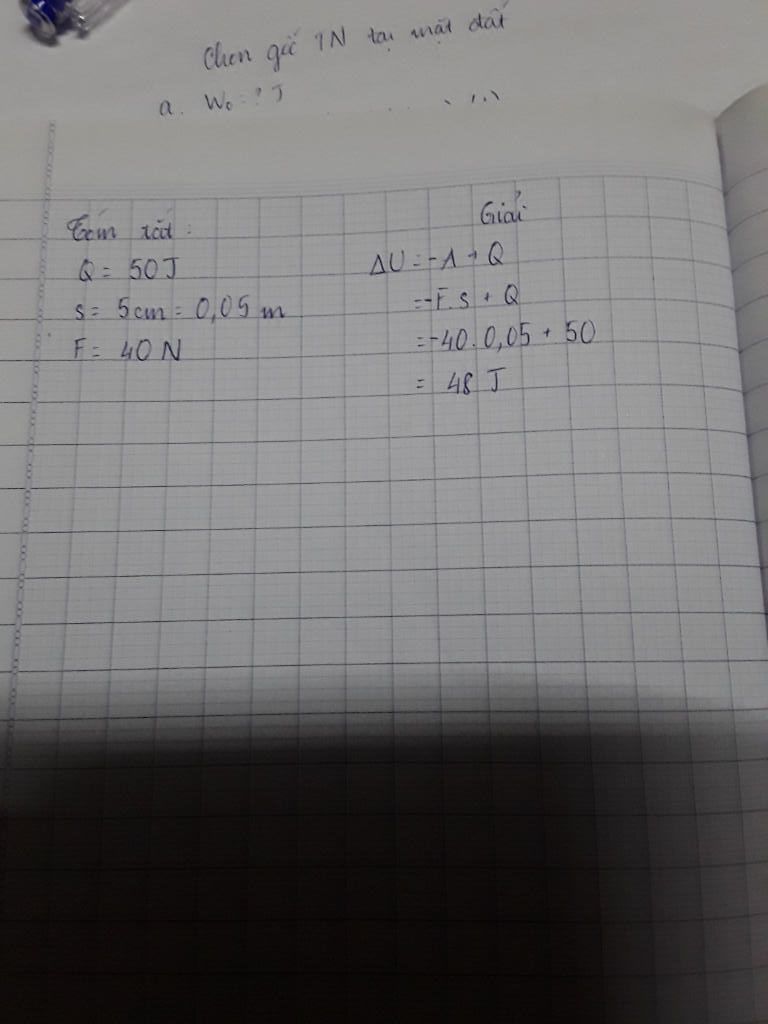 Chọn gốc TN tại mặt đất
a. W₀ = ? J
Tóm tắt:
Q = 50J
s = 5cm = 0,05 m
F = 40 N
Giải
ΔU = -A + Q
= -F.s + Q
= -40.0,05 + 50
= 48 J